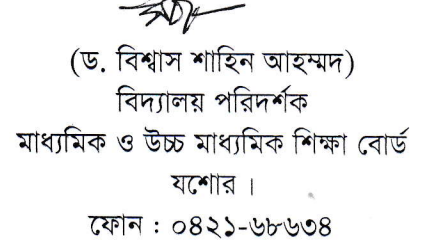 (ড. বিশ্বাস শাহিন আহম্মদ)
বিদ্যালয় পরিদর্শক
মাধ্যমিক ও উচ্চ মাধ্যমিক শিক্ষা বোর্ড
যশোর ।
ফোন : ০৪২১-৬৮৬৩৪